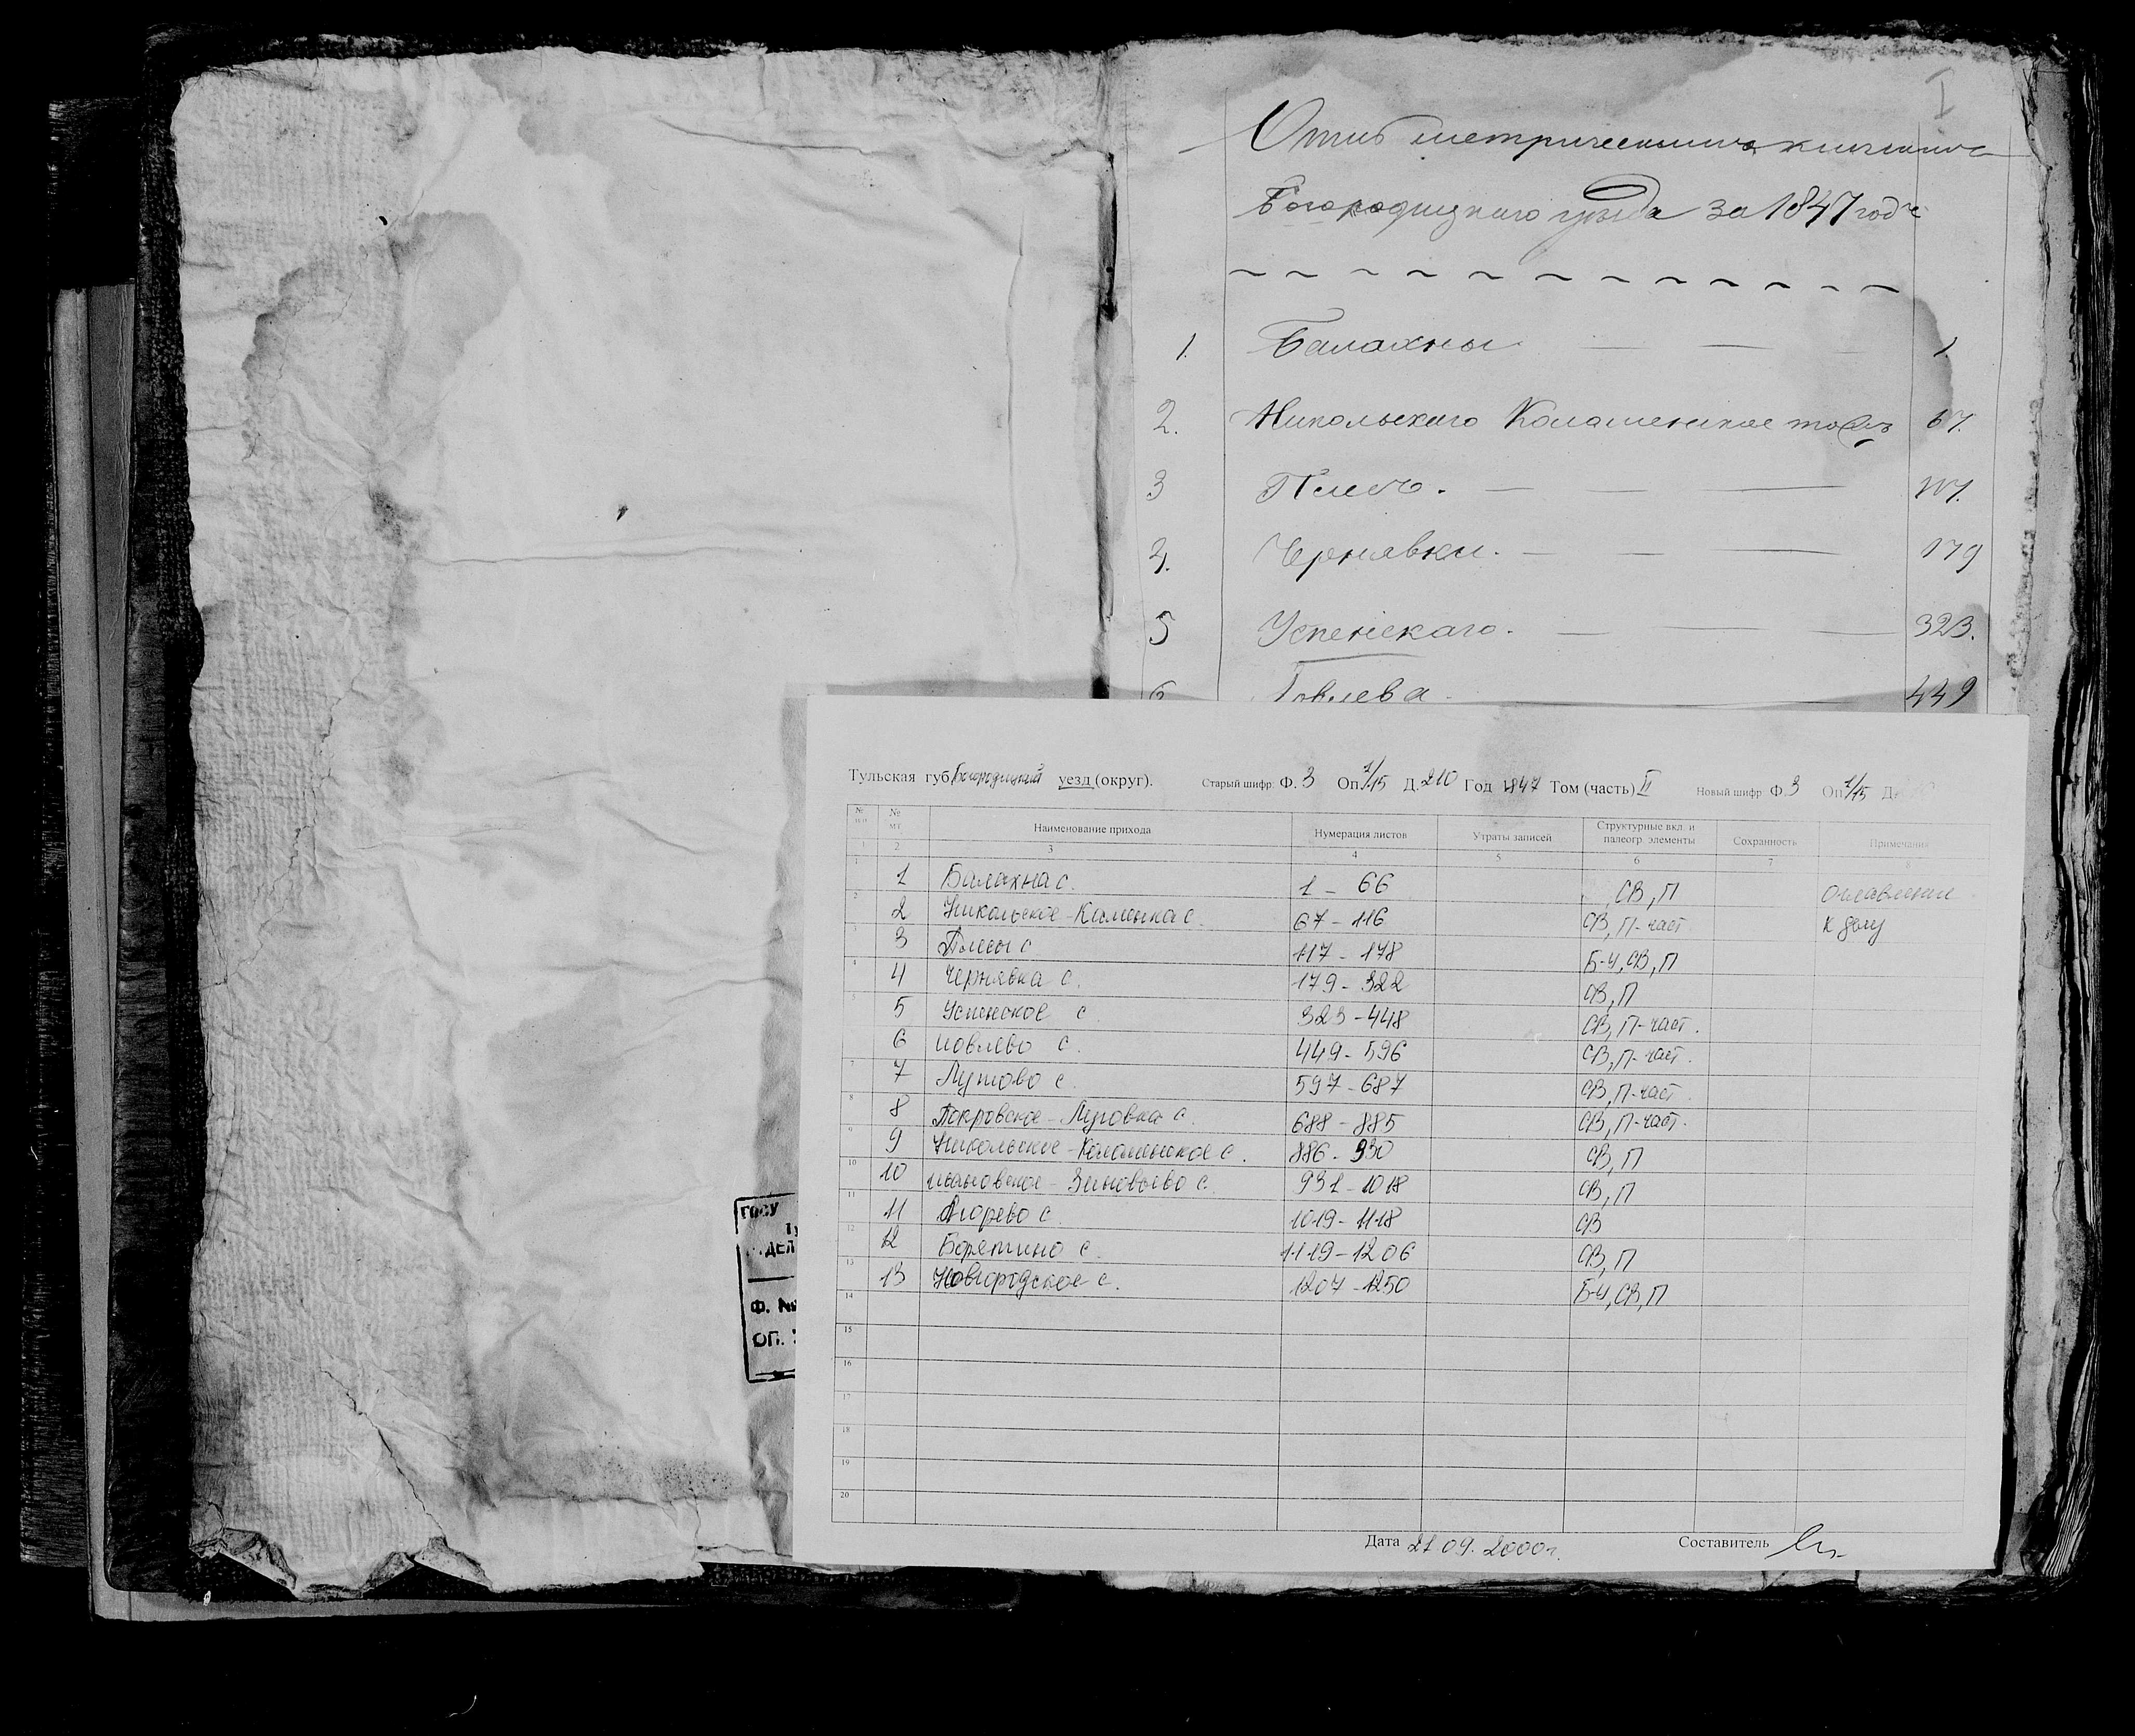 I
Опись метрическимъ книгамъ
Богородицкаго уѣзда за 1847 годъ
1. Балахны 1
2. Никольскаго 67.
3 Плесъ. 117.
4. Чернявки. 179
5 Успенскаго. 323.
6 Іовлева. 449
Тульская губ. Богородицкий уезд (округ). Старый шифр: Ф. 3 Оп. 1/15 Д. 210 Год 1847 Том (часть) II Новый шифр Ф. 3 Оп. 1/15 Д.
№ п п № МТ Наименование прихода Нумерация листов Утраты записей Структурные вкл. и палеогр. элементы Сохранность Примечания
1 2 3 4 5 6 7 8
1 1 Балахна с. 1 - 66 СВ, П Оглавление
2 2 Никольское-Каменка с. 67 - 116 СВ, П-част. к делу
3 3 Плесы с 117 - 178 Б-Ч, СВ, П
4 4 Чернявка с. 179 - 322 СВ, П
5 5 Успенское с 323 - 448 СВ, П-част.
6 Иовлево с. 449 - 596 СВ, П-част.
7 7 Лутово с. 597 - 687 СВ, П-част.
8 8 Покровское-Луговка с. 688 - 885 СВ, П-част.
9 9 Никольское-Коломенское с. 886 - 930 СВ, П
10 10 Ивановское-Зиновьево с. 931 - 1018 СВ, П
11 11 Огорево с. 1019 - 1118 СВ
12 12 Борятино с. 1119 - 1206 СВ, П
13 13 Новгородское с. 1207 - 1250 Б-Ч, СВ, П
14
15
16
17
18
19
20
Дата 21.09.2000г. Составитель
ГОСУ
Ту
ОТДЕЛ
Ф. №
ОП.